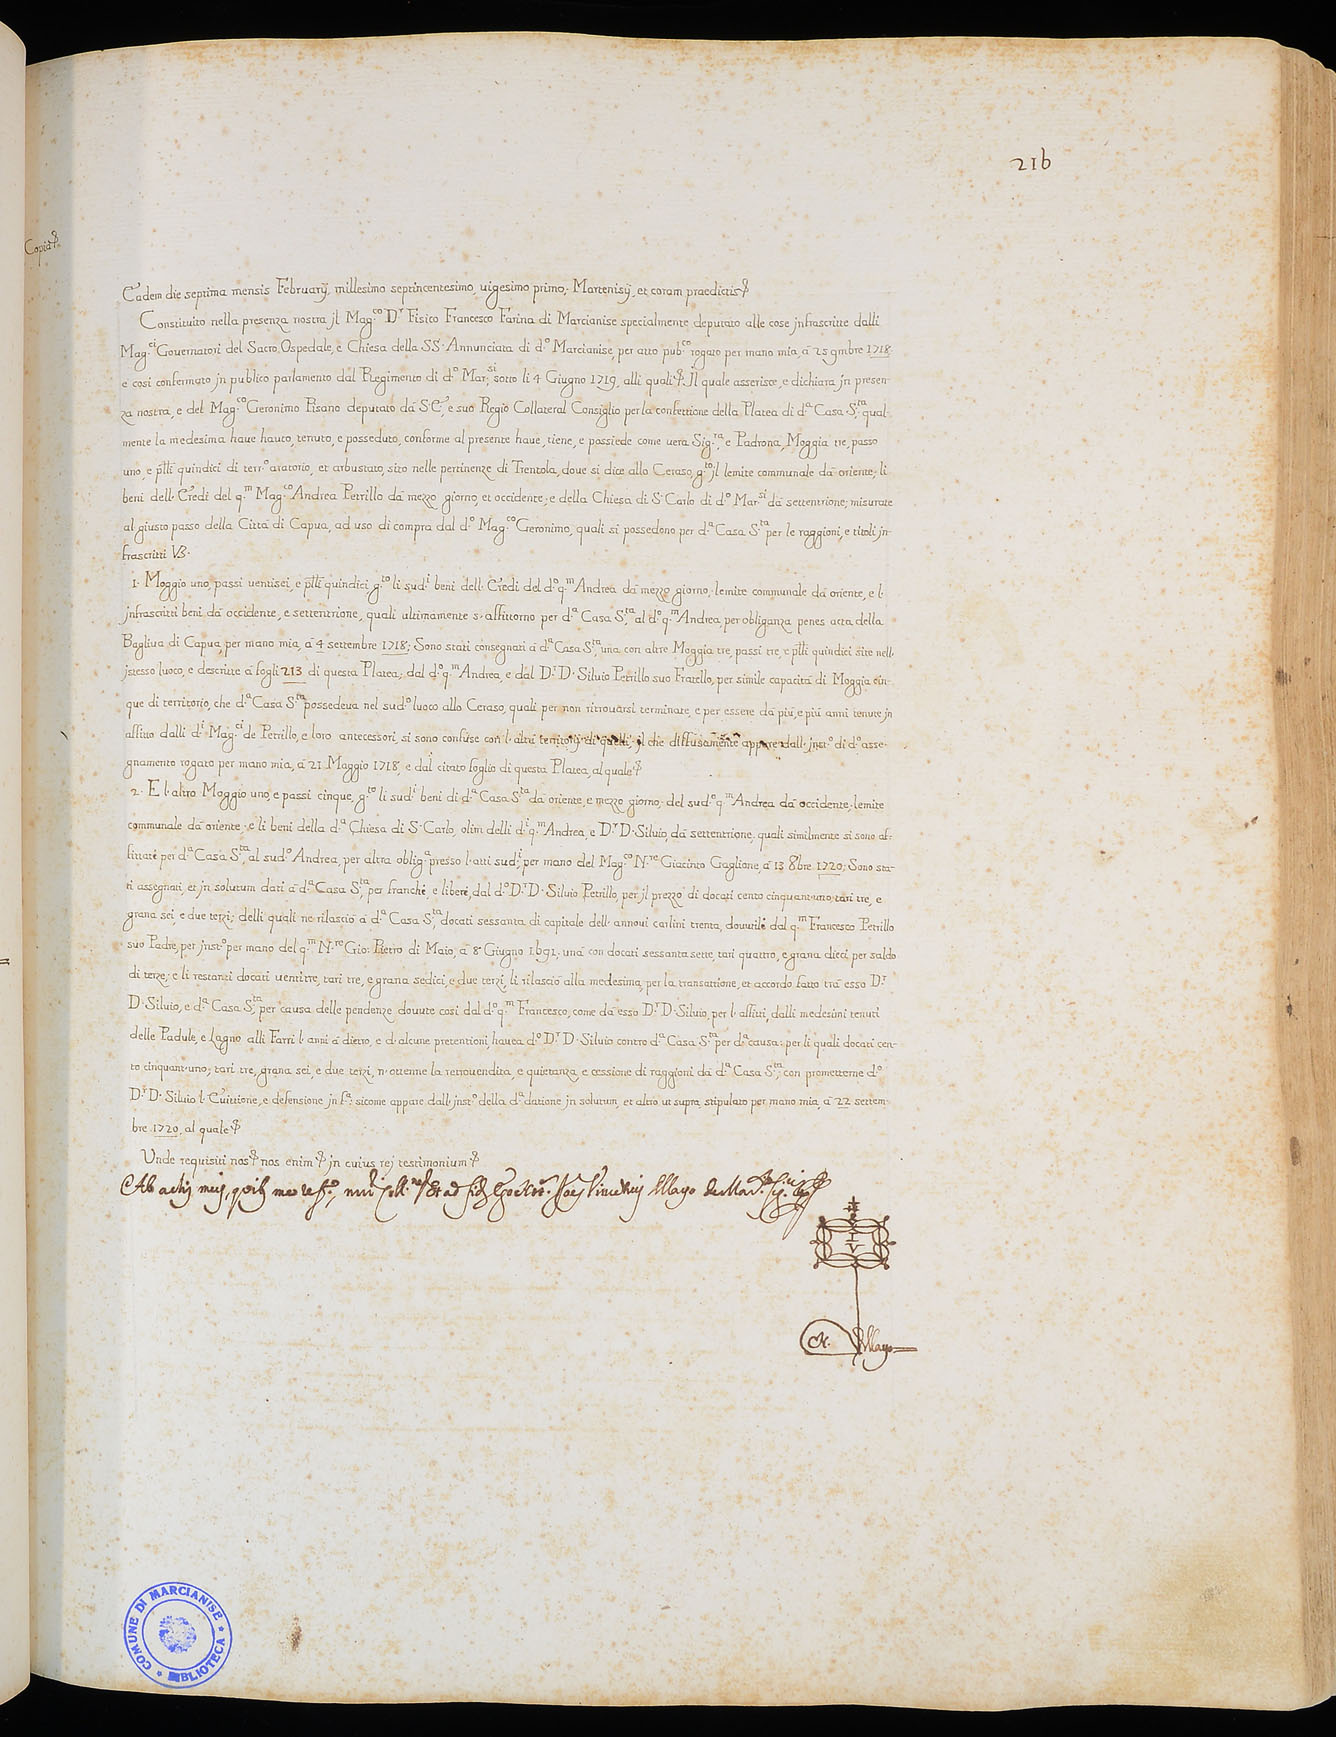 216
Copia
Eadem die septima mensis Februarij, millesimo septincentesimo, uigesimo primo; Martenisij, et coram praedictis
Constituito nella presenza nostra jl Mag.co D.r Fisico Francesco Farina di Marcianise specialmente deputato alle cose jnfrascritte dalli
Mag.ci Governatori del Sacro Ospedale, e Chiesa della SS. Annunciata di d.o Marcianise, per atto pub.co rogato per mano mia, à 25 9mbre 1718
e così confermato jn publico parlamento dal Regimento di d.o Mar.si sotto li 4 Giugno 1719, alli quali. Jl quale asserisce, e dichiara jn presen-
za nostra, e del Mag.co Geronimo Pisano deputato dà S.E., e suo Regio Collateral Consiglio per la confettione della Platea di d.a Casa S.ta, qual-
mente la medesima haue hauto, tenuto, e posseduto, conforme al presente haue, tiene, e possiede come uera Sig.ra, e Padrona, Moggia tre, passo
uno, e p̃tti quindici di terr.o aratorio, et arbustato, sito nelle pertinenze di Trentola, doue si dice allo Ceraso, g.to jl lemite communale dà oriente; li
beni dell' Eredi del q.m Mag.co Andrea Petrillo dà mezzo giorno, et occidente; e della Chiesa di S. Carlo di d.o Mar.si dà settentrione; misurate
al giusto passo della Città di Capua, ad uso di compra dal d.o Mag.co Geronimo, quali si possedono per d.a Casa S.ta per le raggioni, e titoli jn-
frascritti V3.
1. Moggio uno, passi uentisei, e p̃tti quindici, g.to li sud.i beni dell' Eredi del d.o q.m Andrea dà mezzo giorno; lemite communale dà oriente, e l'
jnfrascritti beni dà occidente, e settentrione, quali ultimamente s' affittorno per d.a Casa S.ta, al d.o q.m Andrea, per obliganza penes acta della
Bagliua di Capua, per mano mia, à 4 settembre 1718; Sono stati assegnati à d.a Casa S.ta, una con altre Moggia tre, passi tre, e p̃tti quindici site nell'
jstesso luoco, e descritte à fogli 213 di questa Platea; dal d.o q.m Andrea, e dal D.r D. Siluio Petrillo suo Fratello, per simile capacità di Moggia cin-
que di territorio, che d.a Casa S.ta possedeua nel sud.o luoco allo Ceraso, quali per non ritrouarsi terminate, e per essere dà più, e più anni tenute jn
affitto dalli d.i Mag.ci de Petrillo, e loro antecessori, si sono confuse con l' altri territorij di quelli, jl che diffusamente appare dall' jnst.o di d.o asse-
gnamento rogato per mano mia, à 21 Maggio 1718, e dal citato foglio di questa Platea, al quale
2. E l' altro Moggio uno, e passi cinque, g.to li sud.i beni di d.a Casa S.ta dà oriente, e mezzo giorno; del sud.o q.m Andrea dà occidente; lemite
communale dà oriente; e li beni della d.a Chiesa di S. Carlo, olim delli d.i q.m Andrea, e D.r D. Siluio, dà settentrione; quali similmente si sono af-
fittate per d.a Casa S.ta, al sud.o Andrea, per altra oblig.a presso l' atti sud.i, per mano del Mag.co N.re Giacinto Gaglione, à 13 8bre 1720; Sono sta-
ti assegnati, et jn solutum dati à d.a Casa S.ta, per franche, e libere, dal d.o D.r D. Siluio Petrillo, per jl prezzo di docati cento cinquant'uno, tarì tre, e
grana sei, e due terzi; delli quali ne rilasciò à d.a Casa S.ta, docati sessanta di capitale dell' annoui carlini trenta, douutili dal q.m Francesco Petrillo
suo Padre, per jnst.o per mano del q.m N.re Gio: Pietro di Maio, à 8 Giugno 1691. unà con docati sessanta sette, tarì quattro, e grana dieci, per saldo
di terze; e li restanti docati uentitre, tarì tre, e grana sedici, e due terzi, li rilasciò alla medesima, per la transattione, et accordo fatto trà esso D.r
D. Siluio, e d.a Casa S.ta, per causa delle pendenze douute così dal d.o q.m Francesco, come dà esso D.r D. Siluio, per l' affitti, dalli medesimi tenuti
delle Padule, e Lagno alli Farri l' anni à dietro, e d' alcune pretentioni, hauea d.o D.r D. Siluio contro d.a Casa S.ta per d.a causa: per li quali docati cen-
to cinquant'uno; tarì tre, grana sei, e due terzi, n' ottenne la retrouendita, e quietanza, e cessione di raggioni dà d.a Casa S.ta; con prometterne d.o
D.r D. Siluio l' Euittione, e defensione jn f.a: sicome appare dall' jnst.o della d.a datione jn solutum, et altro ut supra, stipulato per mano mia, à 22 settem-
bre 1720, al quale
Unde requisiti nos nos enim jn cuius rej testimonium
Ab actis meis,
I
V
N. Mayo
COMUNE DI MARCIANISE * BIBLIOTECA *